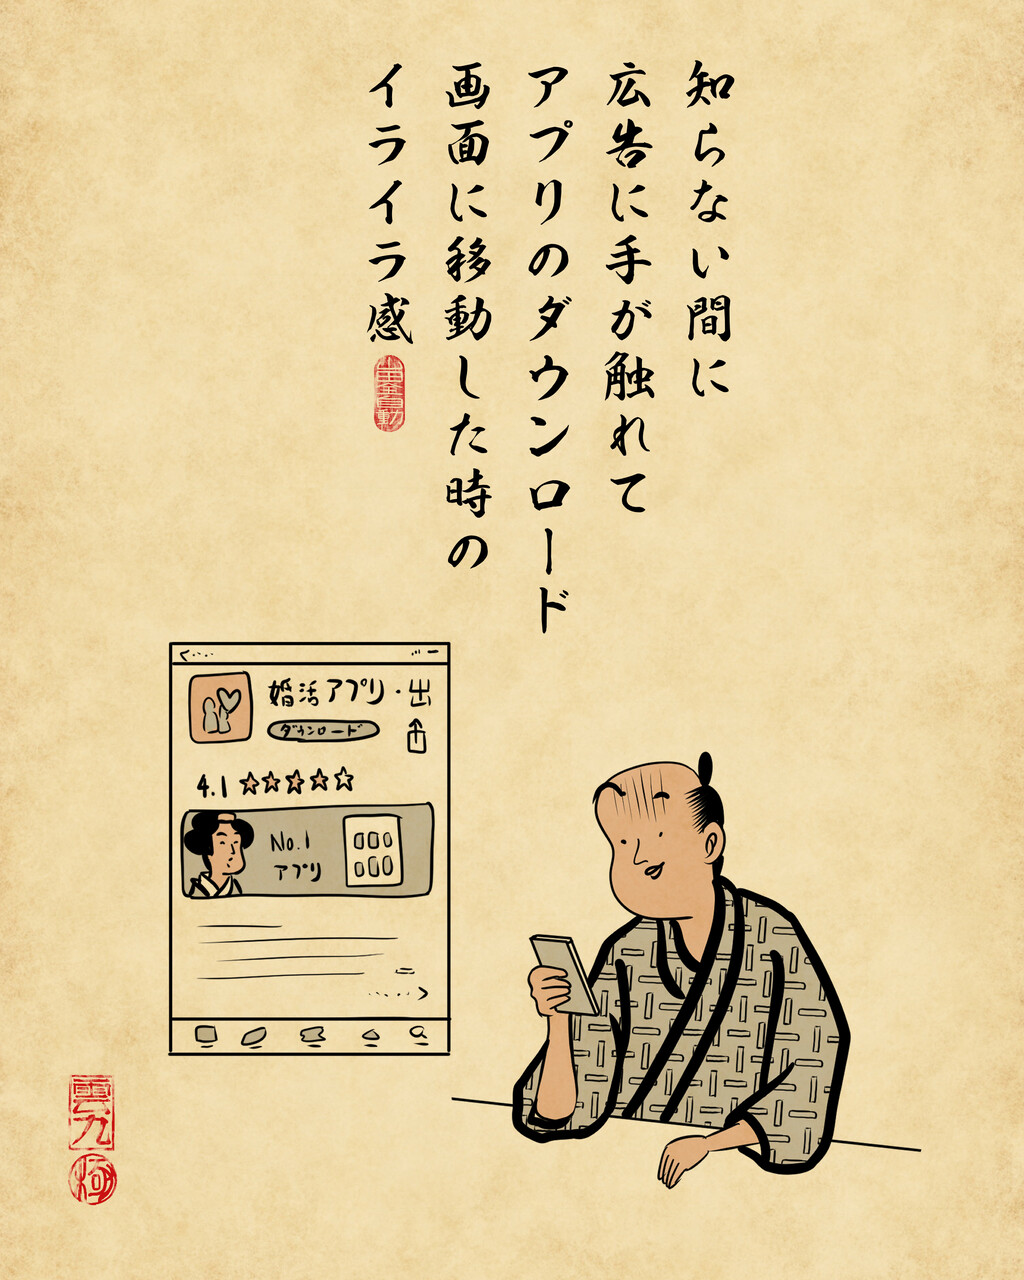 知らない間に
広告に手が触れて
アプリのダウンロード
画面に移動した時の
イライラ感
婚活アプリ・出
ダウンロード
4.1
No.1
アプリ